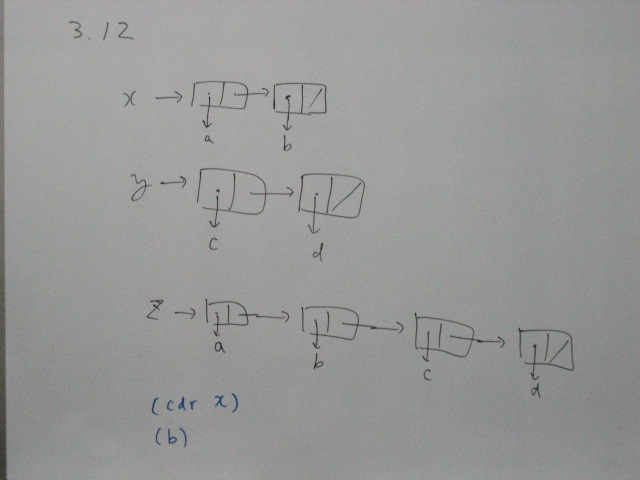 3.12
x
a b
y
c d
z
a b c d
(cdr x)
(b)